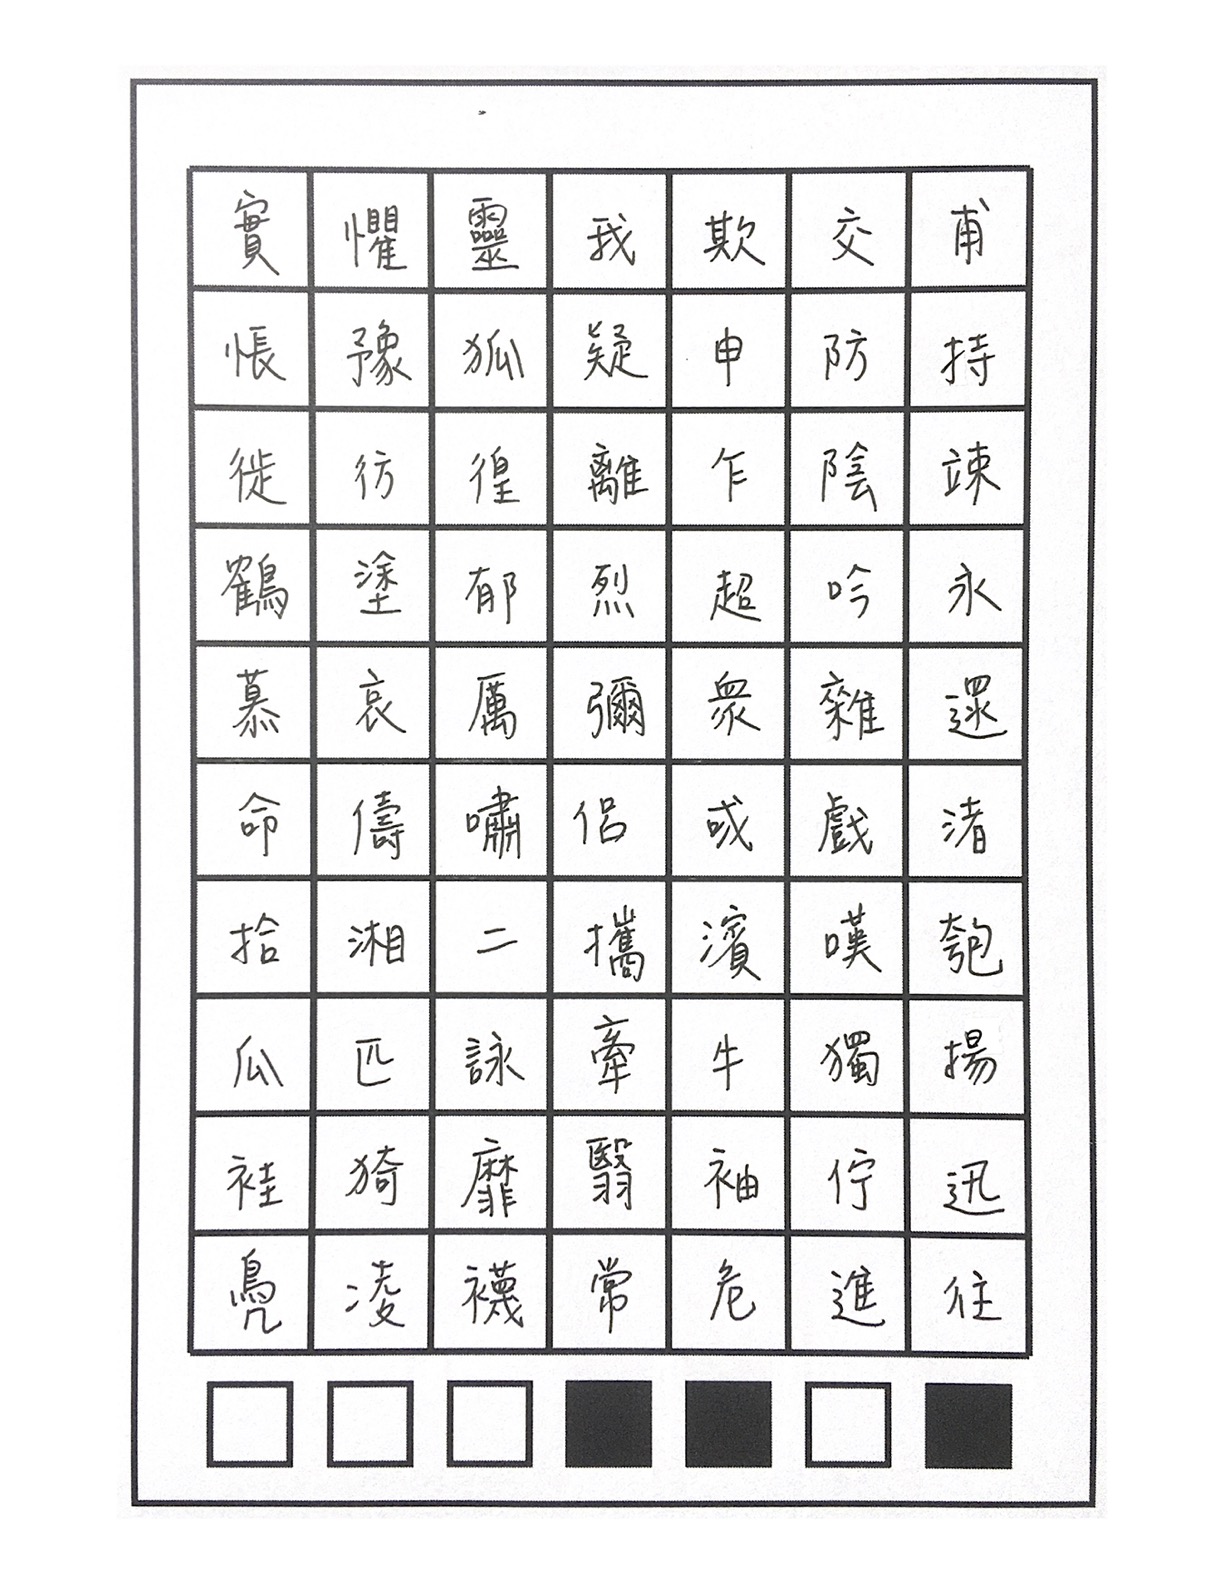 實懼靈我欺交甫
悵豫狐疑申防持
徙彷徨離乍陰竦
鶴塗郁烈超吟永
慕哀厲彌眾雜還
命儔嘯侶或戲渚
拾湘二攜濱嘆匏
瓜匹詠牽牛獨揚
袿猗靡翳袖佇迅
鳧凌襪常危進往